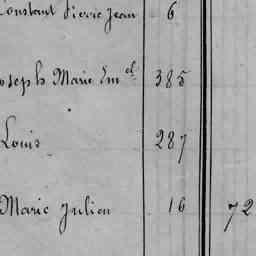 Constant Pierre Jean 6
Joseph Marie Em.el 385
Louis 287
Marie Julien 16 72